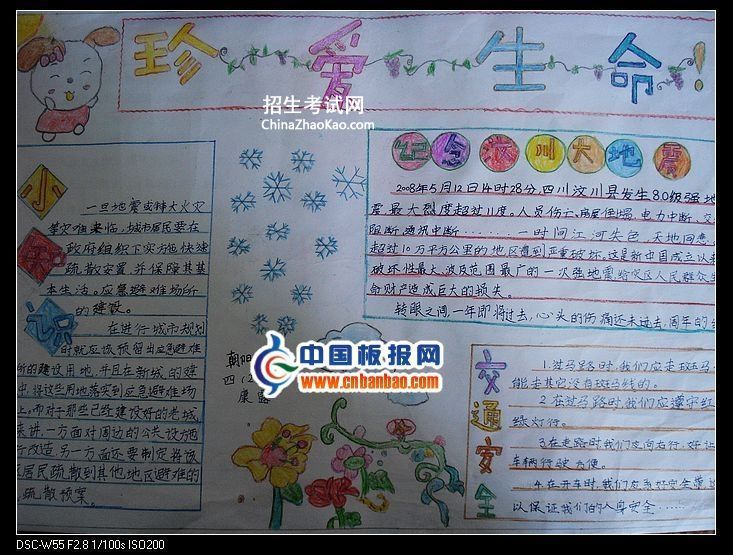 珍爱生命!
招生考试网
ChinaZhaoKao.com
小知识
一旦地震或特大火灾
等灾难来临,城市居民要在
政府组织下实施快速
疏散安置,并保障其基
本生活。应急避难场所
的建设。
在进行城市规划
时就应该预留出应急避难
所的建设用地,并且在新城的建
中,将这些用地落实到应急避难场
上。而对于那些已经建设好的老城
来讲,一方面对周边的公共设施
行改造,另一方面还要制定将该
区居民疏散到其他地区避难的
疏散预案。
纪念汶川大地震
2008年5月12日14时28分,四川汶川县发生8.0级强地
震,最大烈度超过11度。人员伤亡,房屋倒塌,电力中断、交
阻断,通讯中断……一时间江河失色,天地同悲,
超过10万平方公里的地区遭到严重破坏。这是新中国成立以来
破坏性最大、波及范围最广的一次强地震,给灾区人民群众生
命财产造成巨大的损失。
转眼之间,一年即将过去,心头的伤痛还未过去,周年的
朝阳
四(2
康露
中国板报网
www.cnbanbao.com
交通安全
1.过马路时,我们应走斑马
能去其它没有斑马线的。
2.在过马路时我们应遵守红
绿灯行。
3.在走路时我们走向右行,好让
车辆行驶方便。
4.在开车时,我们应系好安全带
以保证我们的人身安全……
DSC-W55 F2.8 1/100s ISO200